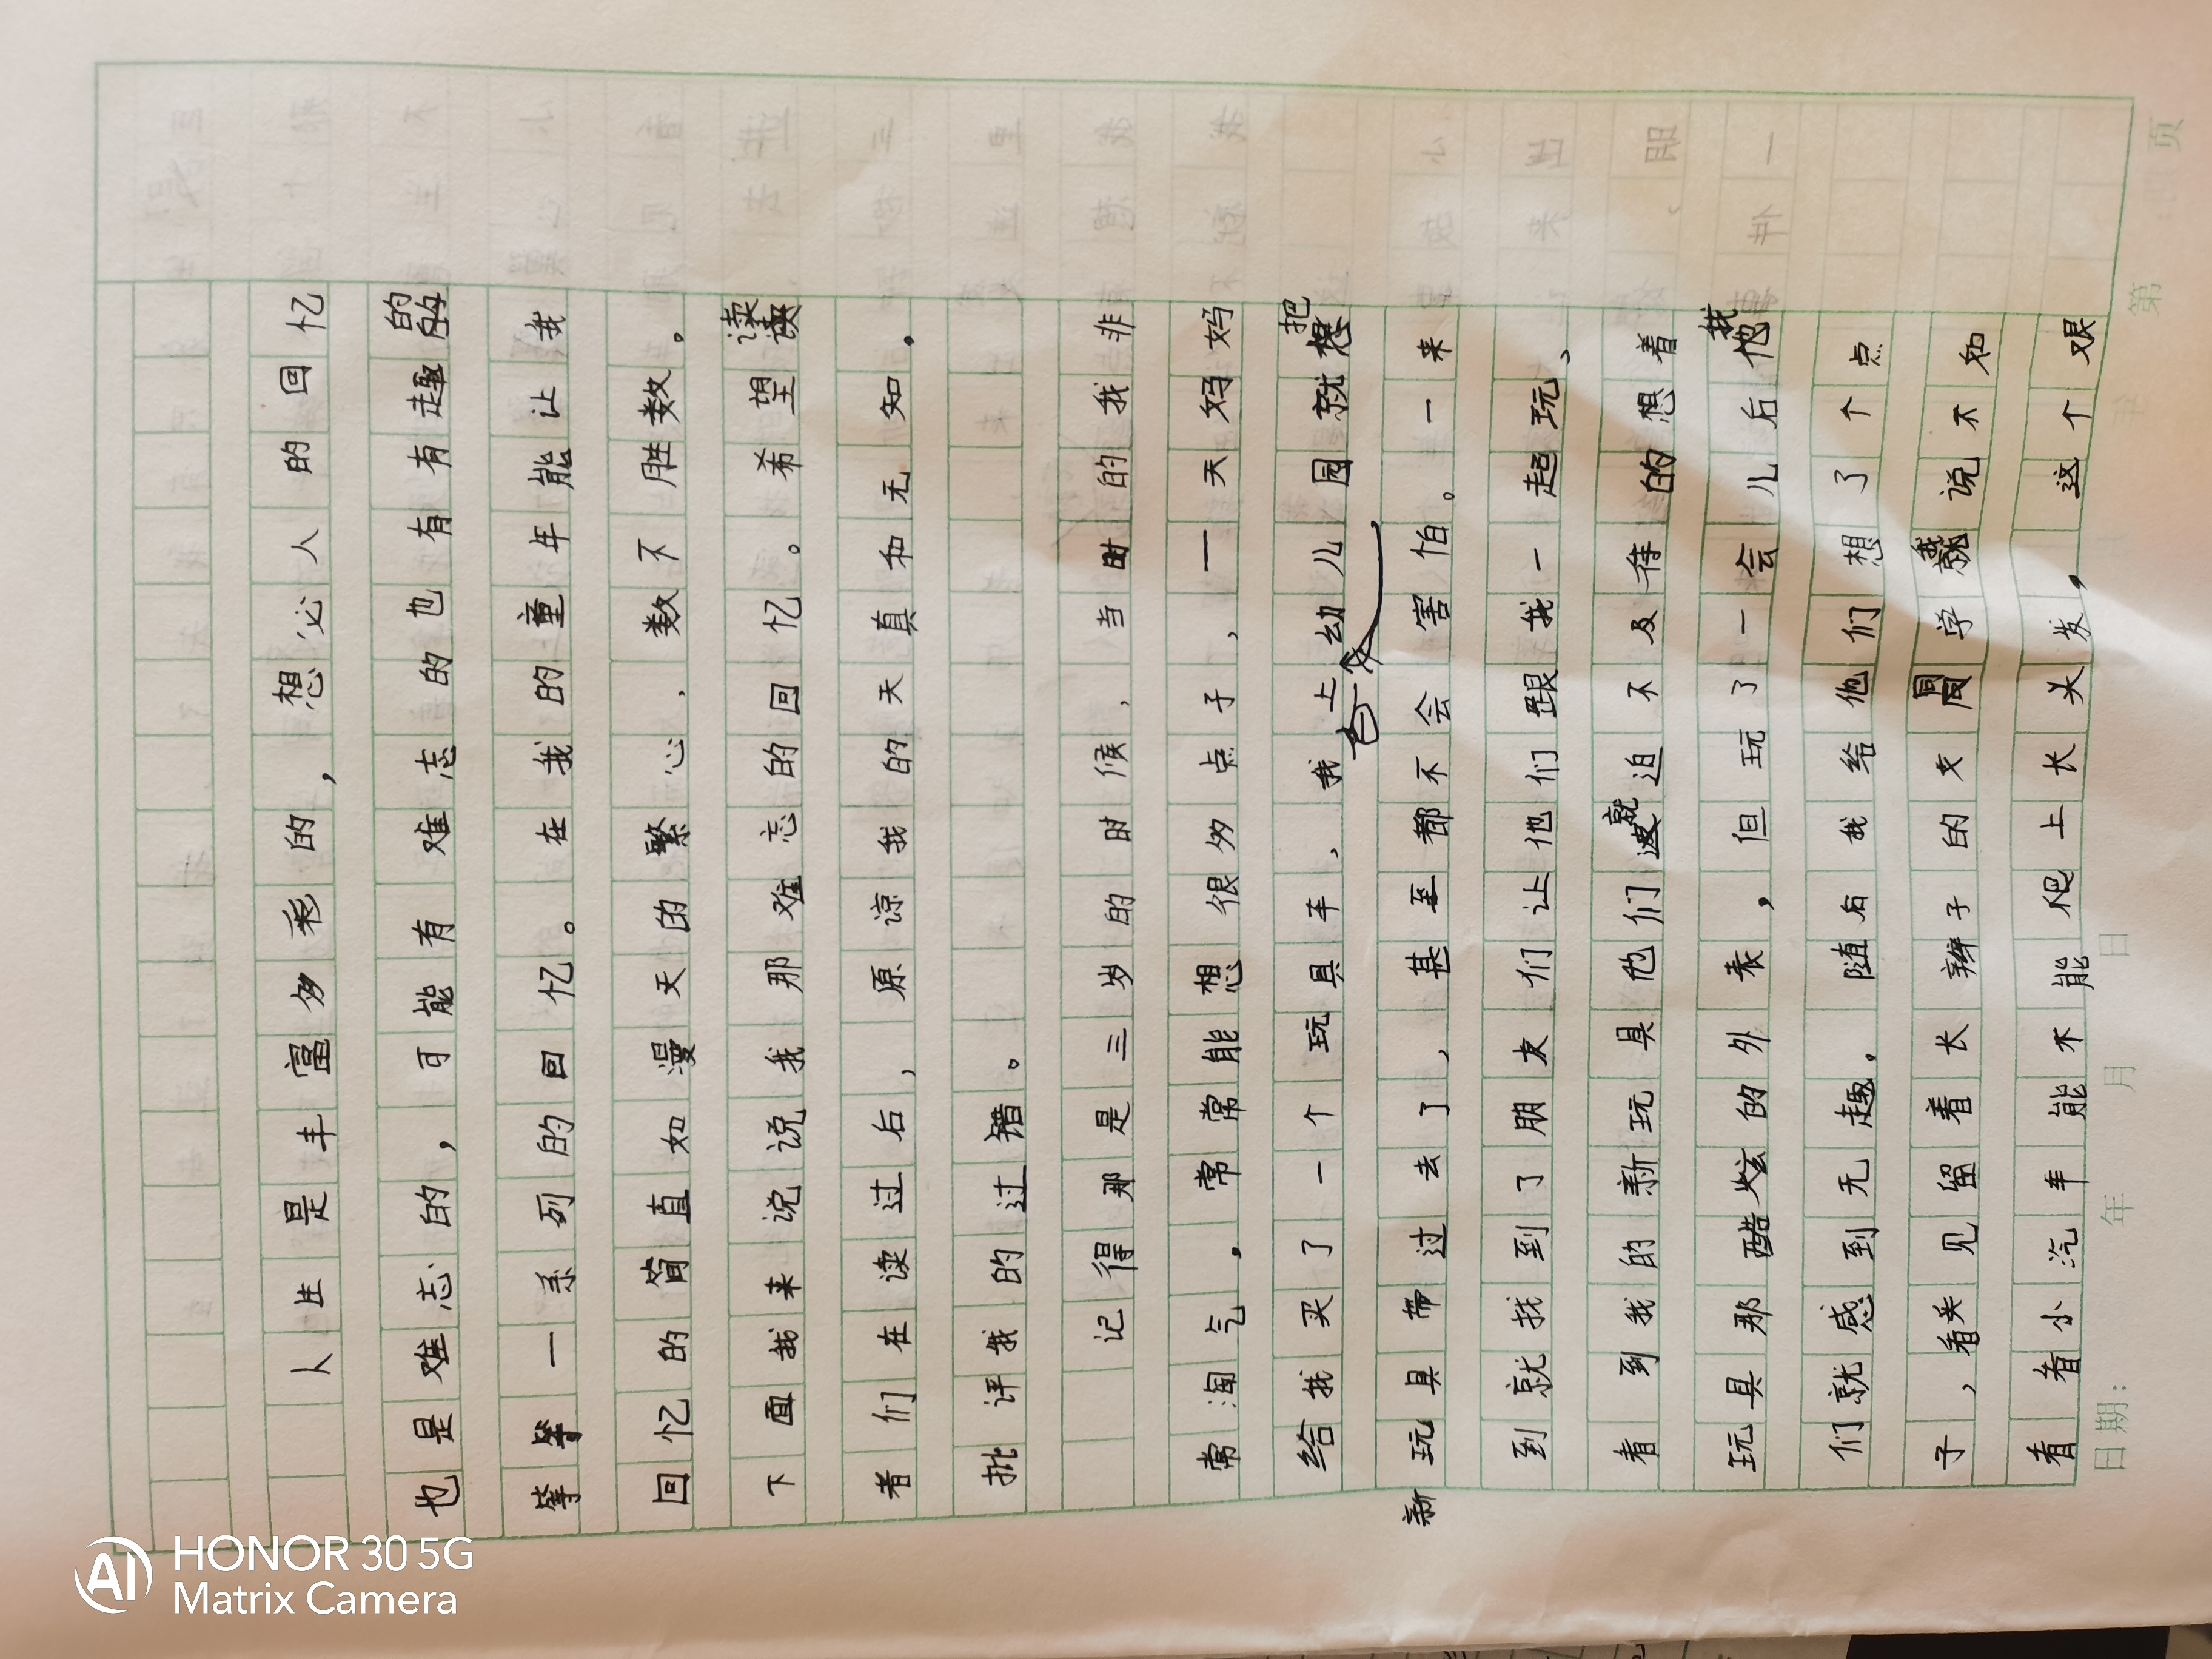 人生是丰富多彩的,想必人的回忆
也是难忘的,可能有难忘的也有有趣的
等等一系列的回忆。在我的童年能让我
回忆的简直如漫天的繁心,数不胜数。
下面我来说说我那难忘的回忆。希望读
者们在读过后,原谅我的天真和无知。
批评我的过错。
记得那是三岁的时候,当时的我非
常淘气,常常能想很多点子,一天妈妈
给我买了一个玩具车,我上幼儿园就把
新玩具带过去了,甚至都不会害怕。一来
到就找到了朋友们让他们跟我一起玩、
看到我的新玩具他们就迫不及待的想着
玩具那酷炫的外表,但玩了一会儿后我
们就感到无趣,随后我给他们想了个点
子,看关见留着长辫子的女同学我说不如
看看小汽车能不能爬上长头发,这个艰
第 页
日期: 年 月 日
HONOR 30 5G
Matrix Camera
AI